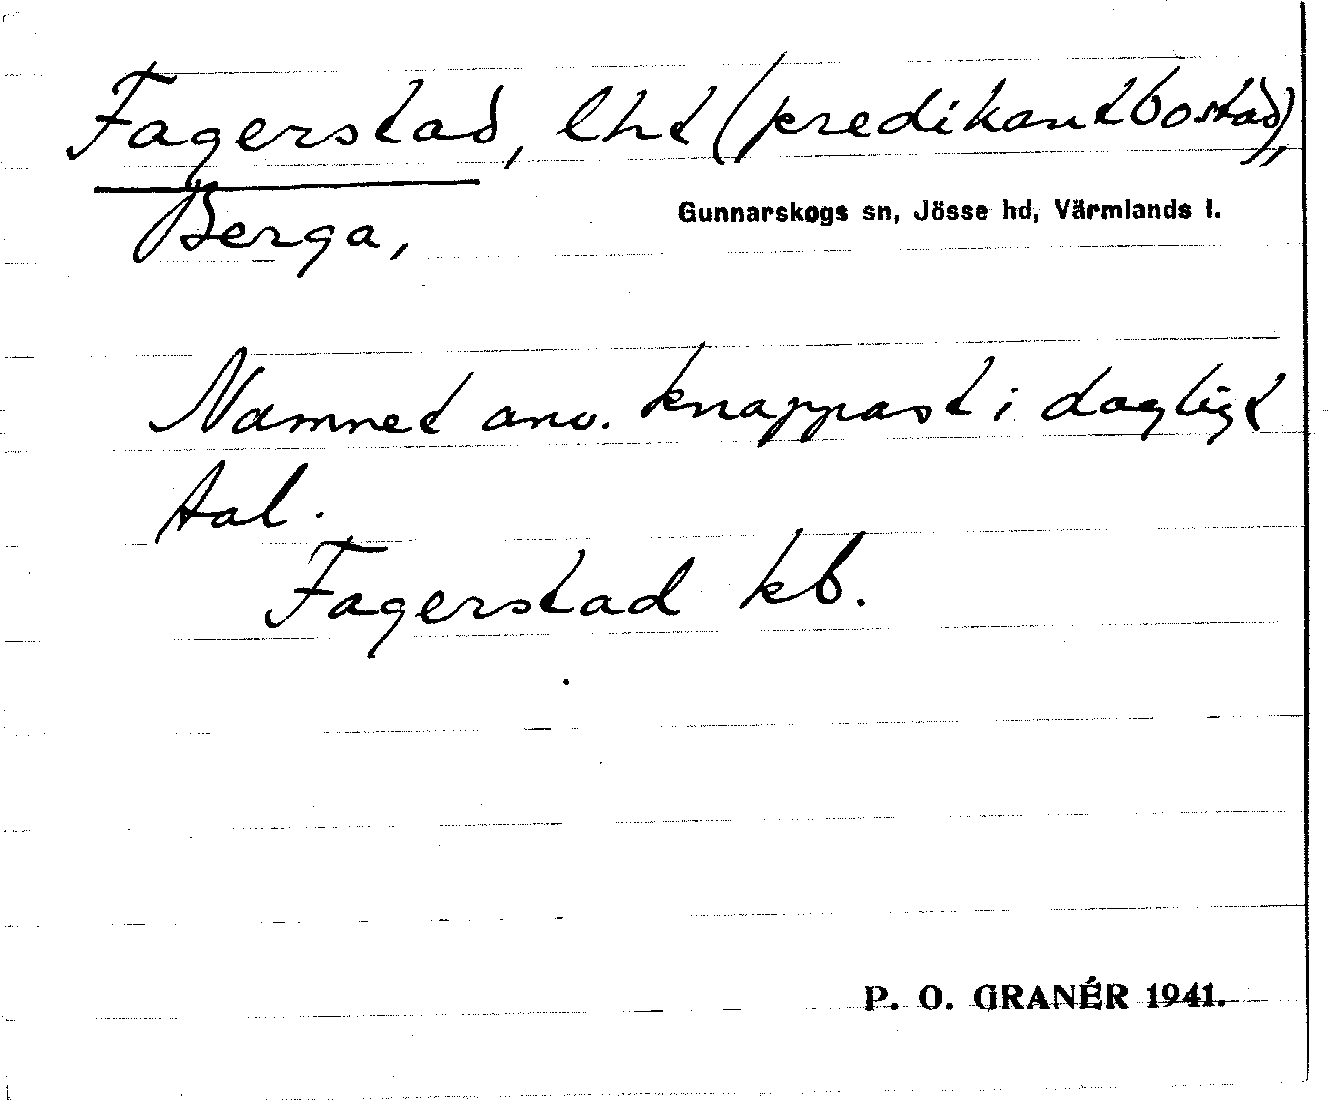 Fagerstad, lht (predikantbostad),
Berga,
Gunnarskogs sn, Jösse hd, Värmlands l.
Namnet anv. knappast i dagligt
tal.
Fagerstad kb.
P. O. GRANÉR 1941.